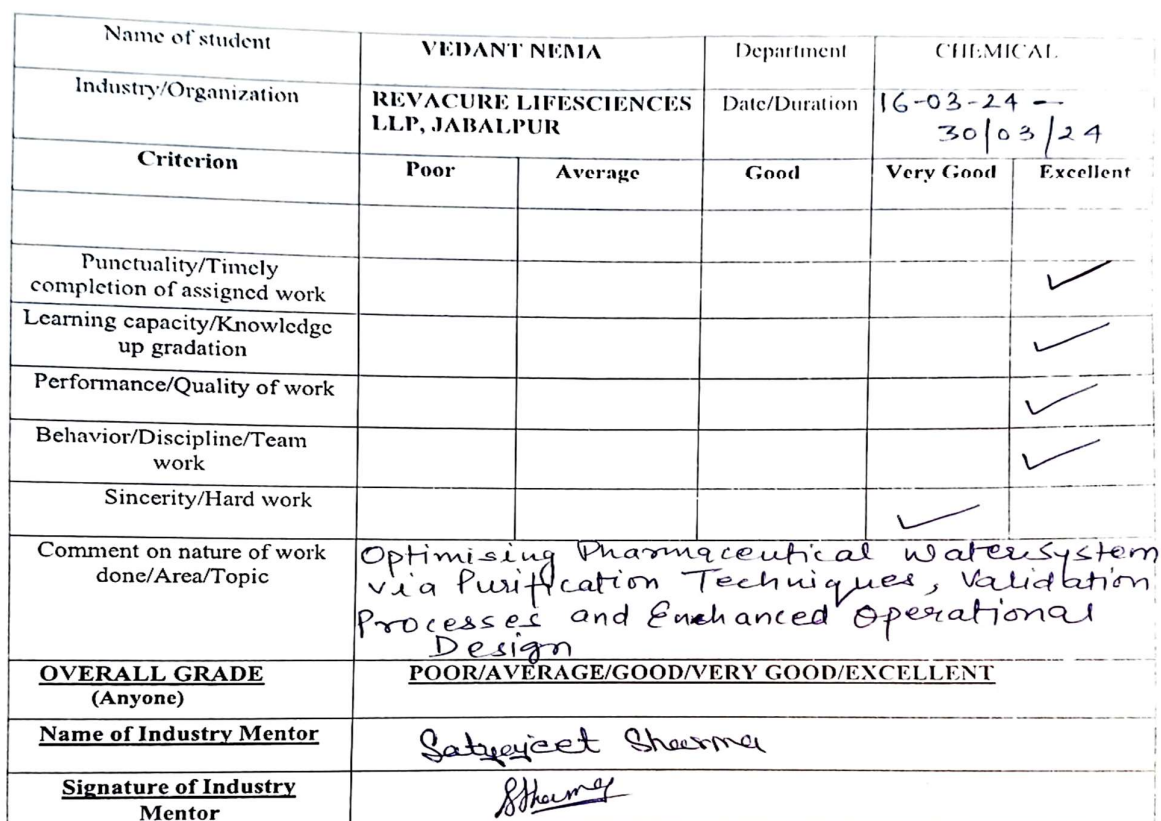 Name of student VEDANT NEMA Department CHEMICAL
Industry/Organization REVACURE LIFESCIENCES Date/Duration 16-03-24 -
LLP, JABALPUR 30/03/24
Criterion Poor Average Good Very Good Excellent
Punctuality/Timely
completion of assigned work ✓
Learning capacity/Knowledge
up gradation ✓
Performance/Quality of work ✓
Behavior/Discipline/Team
work ✓
Sincerity/Hard work ✓
Comment on nature of work Optimising Pharmaceutical water system
done/Area/Topic via Purification Techniques, Validation
Processes and Enehanced Operational
Design
OVERALL GRADE POOR/AVERAGE/GOOD/VERY GOOD/EXCELLENT
(Anyone)
Name of Industry Mentor Satyejeet Sharma
Signature of Industry SSharma
Mentor